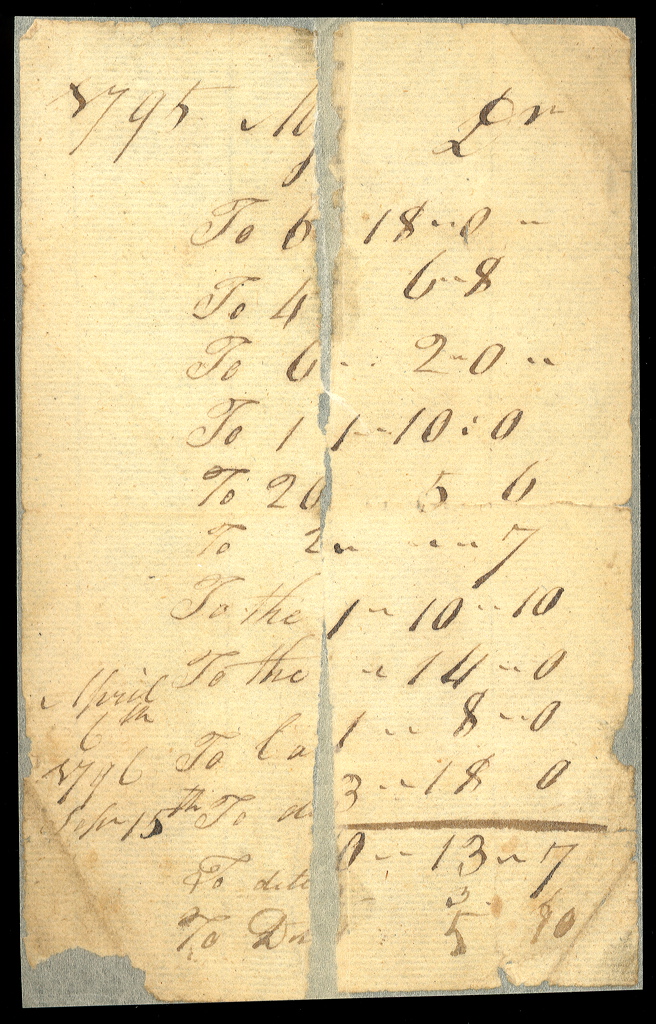 1795 My Dr
To 6 18 " 0 "
To 4 6 " 8
To 6 " 2 " 0 "
To 1 1 " 10 : 0
To 20 5 6
To 2 " " " 7
To the 1 " 10 " 10
To the " 14 " 0
April
6th To Ca 1 " 8 " 0
1796 3 " 18 0
Sepr 15th To d
To dito 0 " 13 " 7
To Do 5